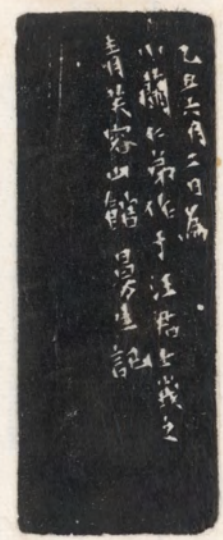 乙丑六月二日為
小蘭仁弟作于汪君士幾之
青芙蓉山館昌生記